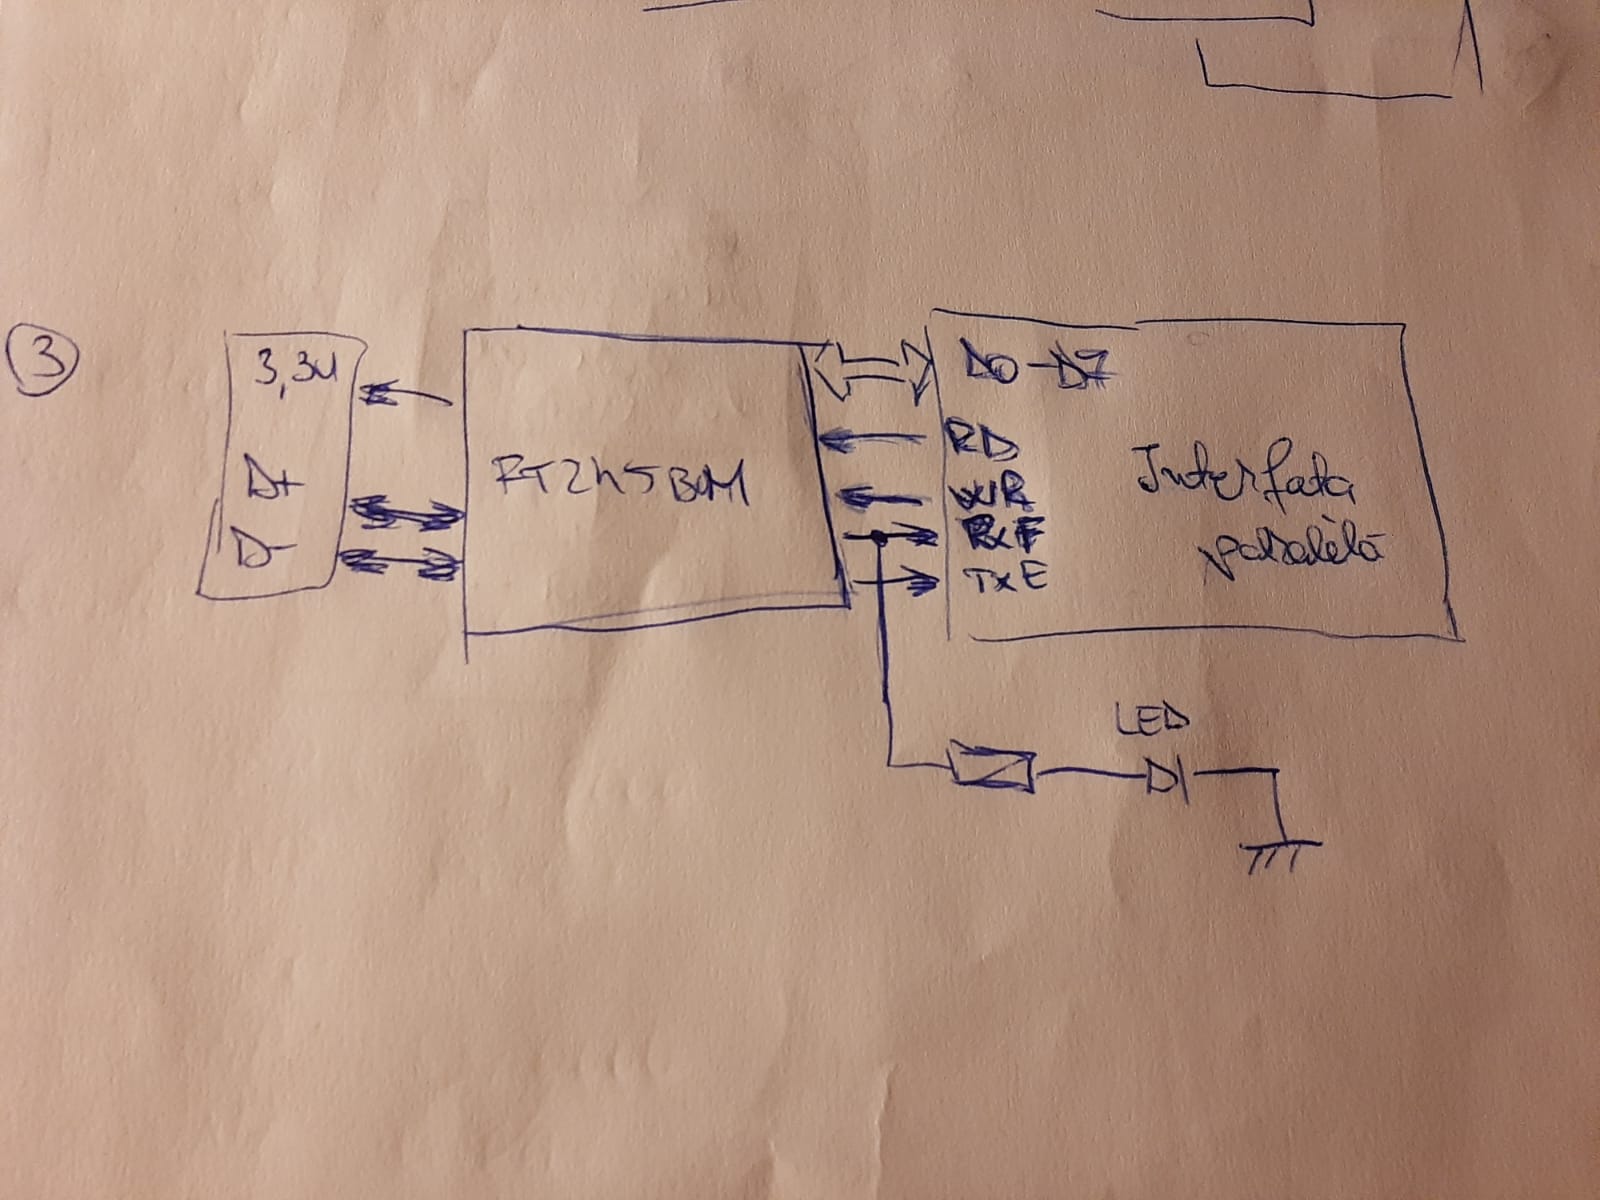 3
3,3V
D+
D-
FT245BM
D0-D7
RD
WR
RXF
TXE
Interfata
paralela
LED